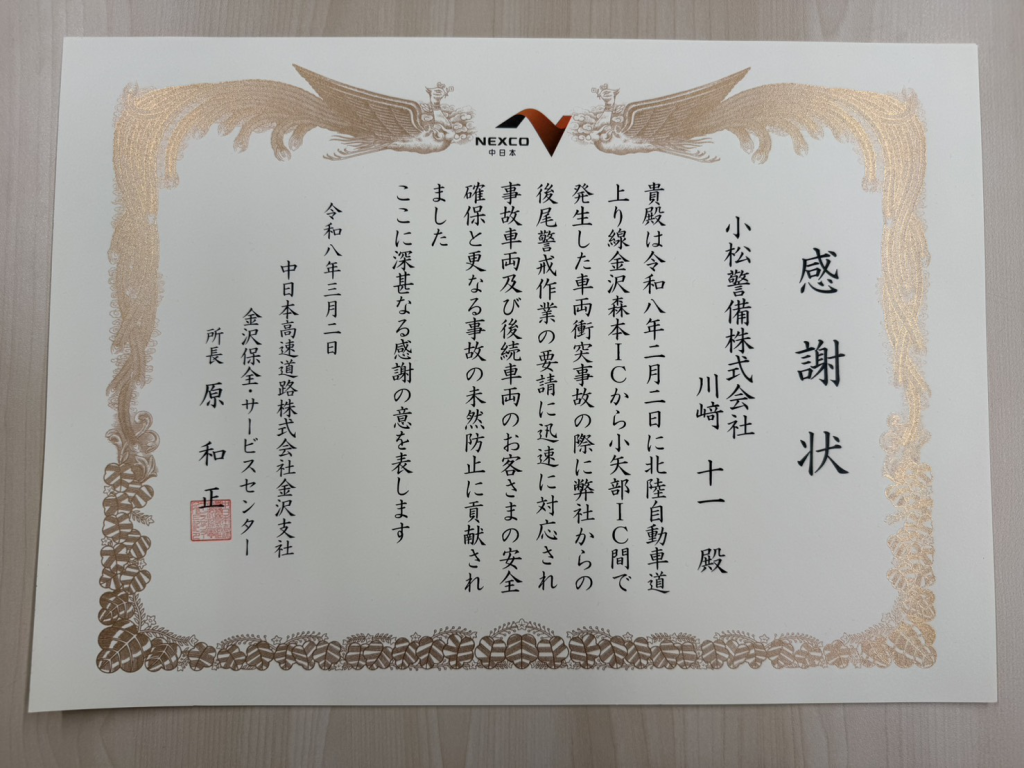 NEXCO
中日本
感謝状
小松警備株式会社
川﨑 十一 殿
貴殿は令和八年二月二日に北陸自動車道
上り線金沢森本ICから小矢部IC間で
発生した車両衝突事故の際に弊社からの
後尾警戒作業の要請に迅速に対応され
事故車両及び後続車両のお客さまの安全
確保と更なる事故の未然防止に貢献され
ました
ここに深甚なる感謝の意を表します
令和八年三月二日
中日本高速道路株式会社金沢支社
金沢保全・サービスセンター
所長 原 和 正